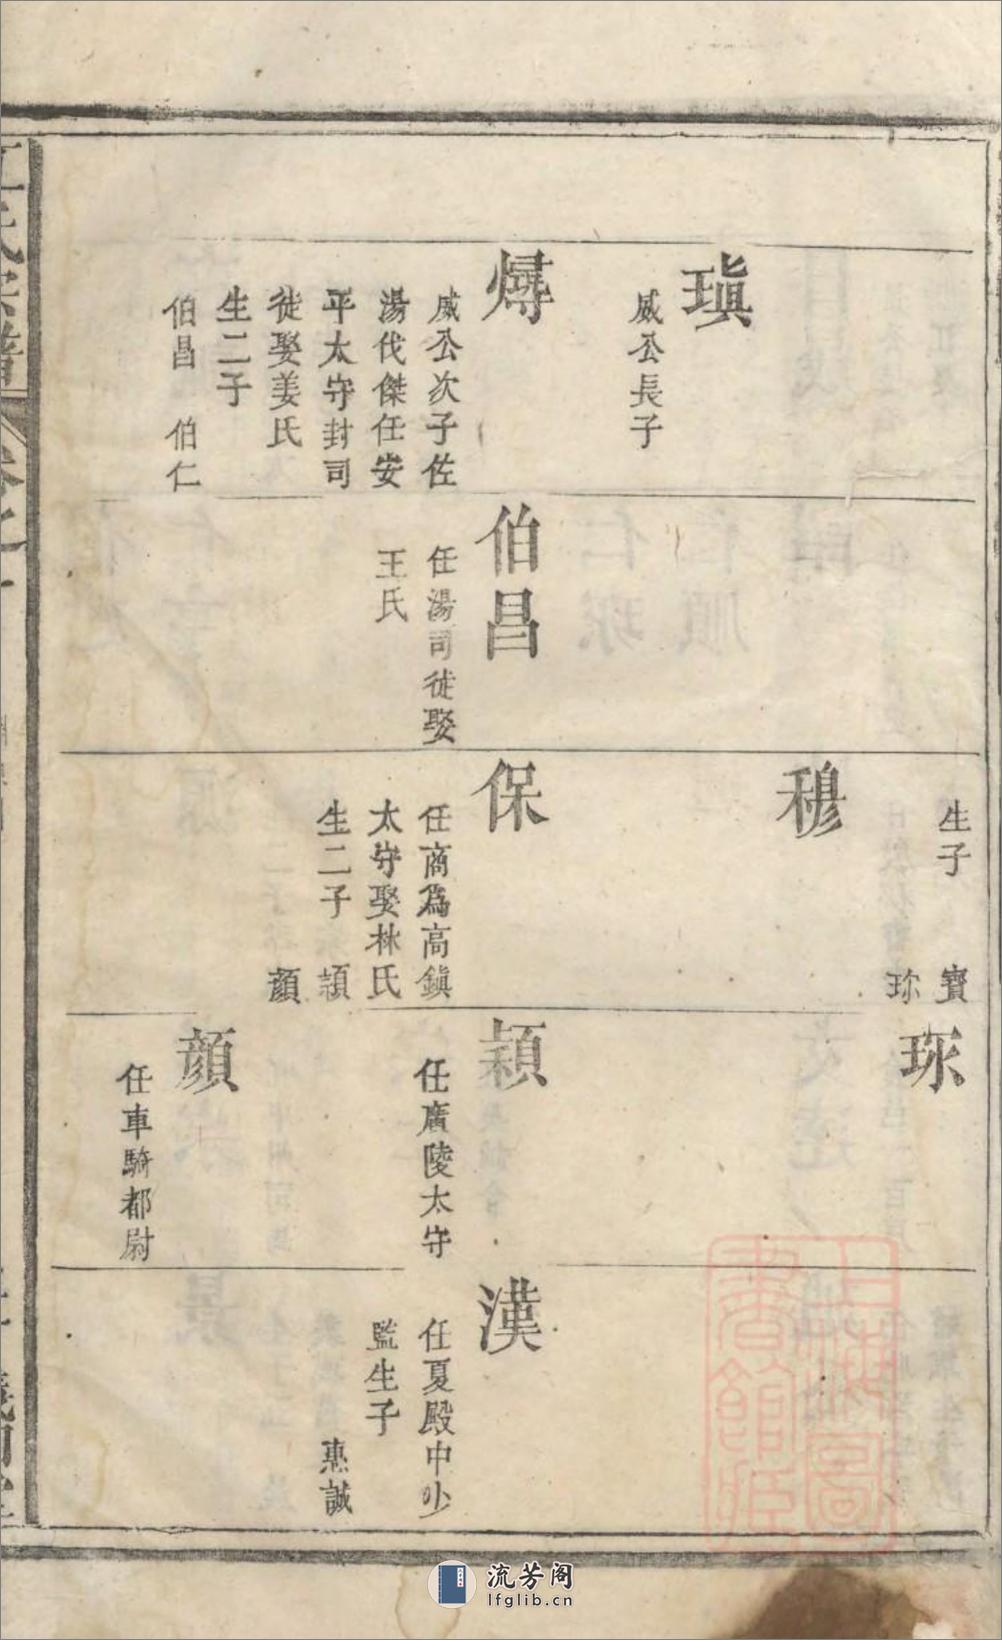 瑱
威公長子
燖
威公次子佐
湯伐傑任安
平太守封司
徒娶姜氏
生二子
伯昌 伯仁
伯昌
任湯司徒娶
王氏
生子 寶
珎
穆
保
任商為高鎮
太守娶林氏
生二子 頴
顔
珎
頴
任廣陵太守
顔
任車騎都尉
漢
任夏殿中少
監生子
惠誠
流芳阁
lfglib.cn